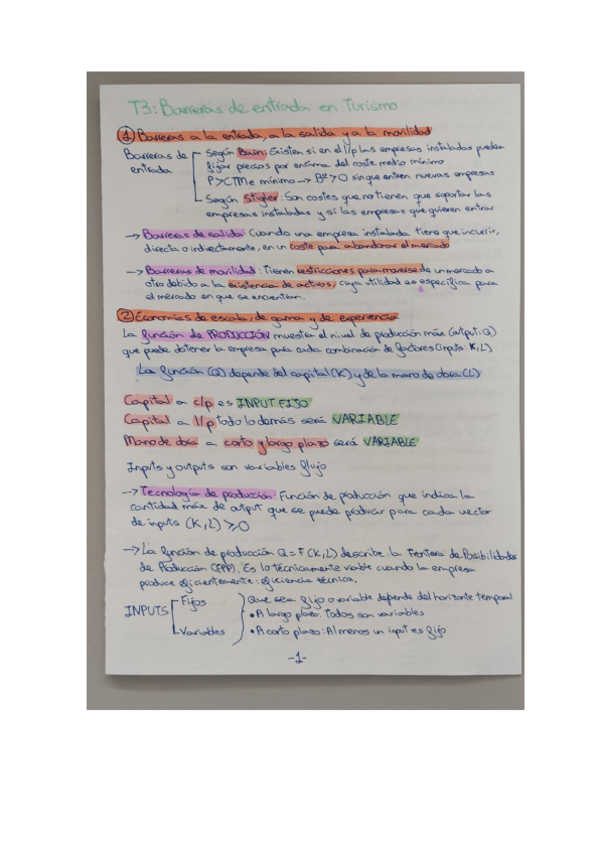 T3: Barreras de entrada en Turismo
① Barreras a la entrada, a la salida y a la movilidad
Barreras de entrada
Según Bain: Existen si en el l/p las empresas instaladas pueden
fijar precios por encima del coste medio mínimo
P>CTMe mínimo → Bº>0 sin que entren nuevas empresas
Según Stigler: Son costes que no tienen que soportar las
empresas instaladas y sí las empresas que quieren entrar
→ Barreras de salida: Cuando una empresa instalada tiene que incurrir,
directa o indirectamente, en un coste para abandonar el mercado
→ Barreras de movilidad: Tienen restricciones para moverse de un mercado a
otro debido a la existencia de activos, cuya utilidad es específica para
el mercado en que se encuentran.
② Economías de escala, de gama y de experiencia
La función de PRODUCCIÓN muestra el nivel de producción máx (output: Q)
que puede obtener la empresa para cada combinación de factores (inputs: K, L)
La función (Q) depende del capital (K) y de la mano de obra (L)
Capital a c/p es INPUT FIJO
Capital a l/p todo lo demás será VARIABLE
Mano de obra a corto y largo plazo será VARIABLE
Inputs y outputs son variables flujo
→ Tecnología de producción: Función de producción que indica la
cantidad máx de output que se puede producir para cada vector
de inputs (K, L) ≥0
→ La función de producción Q = F (K, L) describe la Frontera de Posibilidades
de Producción (FPP). Es lo técnicamente viable cuando la empresa
produce eficientemente: eficiencia técnica.
INPUTS
Fijos
Variables
Que sea fijo o variable depende del horizonte temporal
• A largo plazo: Todos son variables
• A corto plazo: Al menos un input es fijo
-1-